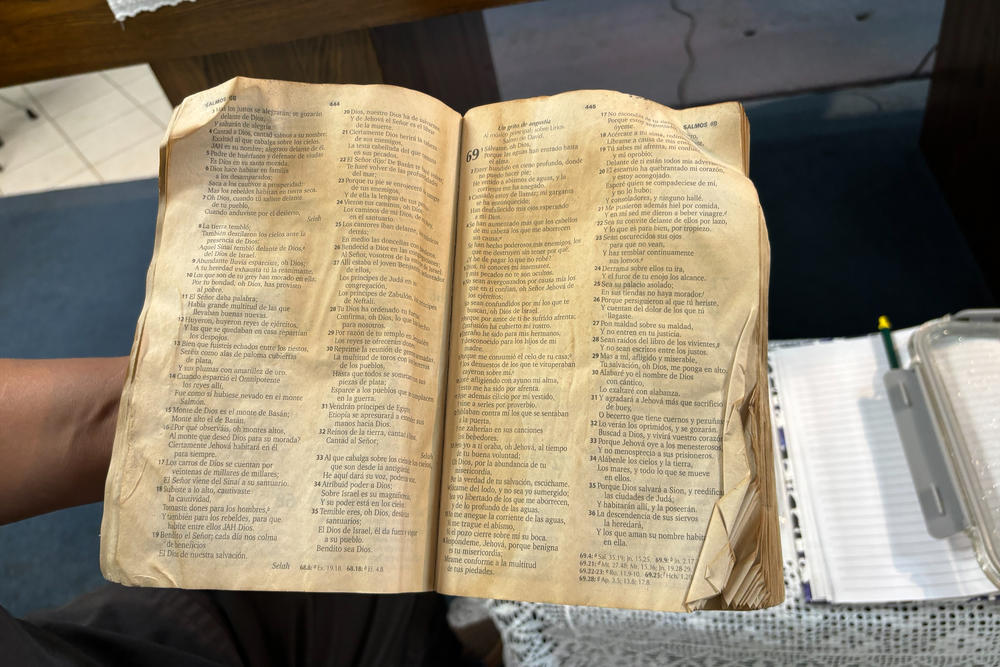 SALMOS 68
444
3 Mas los justos se alegrarán; se gozarán
delante de Dios,
Y saltarán de alegría.
4 Cantad a Dios, cantad salmos a su nombre;
Exaltad al que cabalga sobre los cielos.
JAH es su nombre; alegraos delante de él.
5 Padre de huérfanos y defensor de viudas
Es Dios en su santa morada.
6 Dios hace habitar en familia
a los desamparados;
Saca a los cautivos a prosperidad;
Mas los rebeldes habitan en tierra seca.
7 Oh Dios, cuando tú saliste delante
de tu pueblo,
Cuando anduviste por el desierto,
Selah
8 La tierra tembló;
También destilaron los cielos ante la
presencia de Dios;
Aquel Sinaí tembló delante de Dios,
del Dios de Israel.
9 Abundante lluvia esparciste, oh Dios;
A tu heredad exhausta tú la reanimaste.
10 Los que son de tu grey han morado en ella;
Por tu bondad, oh Dios, has provisto
al pobre.
11 El Señor daba palabra;
Había grande multitud de las que
llevaban buenas nuevas.
12 Huyeron, huyeron reyes de ejércitos,
Y las que se quedaban en casa repartían
los despojos.
13 Bien que fuisteis echados entre los tiestos,
Seréis como alas de paloma cubiertas
de plata,
Y sus plumas con amarillez de oro.
14 Cuando esparció el Omnipotente
los reyes allí,
Fue como si hubiese nevado en el monte
Salmón.
15 Monte de Dios es el monte de Basán;
Monte alto el de Basán.
16 ¿Por qué observáis, oh montes altos,
Al monte que deseó Dios para su morada?
Ciertamente Jehová habitará en él
para siempre.
17 Los carros de Dios se cuentan por
veintenas de millares de millares;
El Señor viene del Sinaí a su santuario.
18 Subiste a lo alto, cautivaste
la cautividad,
Tomaste dones para los hombres,
Y también para los rebeldes, para que
habite entre ellos JAH Dios.
19 Bendito el Señor; cada día nos colma
de beneficios
El Dios de nuestra salvación.
Selah
20 Dios, nuestro Dios ha de salvarnos,
Y de Jehová el Señor es el librar
de la muerte.
21 Ciertamente Dios herirá la cabeza
de sus enemigos,
La testa cabelluda del que camina
en sus pecados.
22 El Señor dijo: De Basán te haré volver;
Te haré volver de las profundidades
del mar;
23 Porque tu pie se enrojecerá de sangre
de tus enemigos,
Y de ella la lengua de tus perros.
24 Vieron tus caminos, oh Dios;
Los caminos de mi Dios, de mi Rey,
en el santuario.
25 Los cantores iban delante, los músicos
detrás;
En medio las doncellas con panderos.
26 Bendecid a Dios en las congregaciones;
Al Señor, vosotros de la estirpe de Israel.
27 Allí estaba el joven Benjamín, señoreador
de ellos,
Los príncipes de Judá en su
congregación,
Los príncipes de Zabulón, los príncipes
de Neftalí.
28 Tu Dios ha ordenado tu fuerza;
Confirma, oh Dios, lo que has hecho
para nosotros.
29 Por razón de tu templo en Jerusalén
Los reyes te ofrecerán dones.
30 Reprime la reunión de gentes armadas,
La multitud de toros con los becerros
de los pueblos,
Hasta que todos se sometan con sus
piezas de plata;
Esparce a los pueblos que se complacen
en la guerra.
31 Vendrán príncipes de Egipto;
Etiopía se apresurará a extender sus
manos hacia Dios.
32 Reinos de la tierra, cantad a Dios,
Cantad al Señor;
Selah
33 Al que cabalga sobre los cielos de los cielos,
que son desde la antigüedad;
He aquí dará su voz, poderosa voz.
34 Atribuid poder a Dios;
Sobre Israel es su magnificencia,
Y su poder está en los cielos.
35 Temible eres, oh Dios, desde tus
santuarios;
El Dios de Israel, él da fuerza y vigor
a su pueblo.
Bendito sea Dios.
68.8: Ex. 19.18. 68.18: Ef. 4.8.
445
SALMOS 69
Un grito de angustia
Al músico principal; sobre Lirios.
Salmo de David.
69 1 Sálvame, oh Dios,
Porque las aguas han entrado hasta
el alma.
2 Estoy hundido en cieno profundo, donde
no puedo hacer pie;
He venido a abismos de aguas, y la
corriente me ha anegado.
3 Cansado estoy de llamar; mi garganta
se ha enronquecido;
Han desfallecido mis ojos esperando
a mi Dios.
4 Se han aumentado más que los cabellos
de mi cabeza los que me aborrecen
sin causa;
Se han hecho poderosos mis enemigos, los
que me destruyen sin tener por qué.
¿Y he de pagar lo que no robé?
Dios, tú conoces mi insensatez,
pecados no te son ocultos.
No sean avergonzados por causa mía los
que en ti confían, oh Señor Jehová de
los ejércitos;
sean confundidos por mí los que te
buscan, oh Dios de Israel.
Porque por amor de ti he sufrido afrenta;
Confusión ha cubierto mi rostro.
sido para mis hermanos,
desconocido para los hijos de mi
madre.
Porque me consumió el celo de tu casa;
los denuestos de los que te vituperaban
cayeron sobre mí.
afligiendo con ayuno mi alma,
esto me ha sido por afrenta.
además cilicio por mi vestido,
vine a serles por proverbio.
Hablaban contra mí los que se sentaban
a la puerta,
me zaherían en sus canciones
los bebedores.
Pero yo a ti oraba, oh Jehová, al tiempo
de tu buena voluntad;
Dios, por la abundancia de tu
misericordia,
la verdad de tu salvación, escúchame.
Sácame del lodo, y no sea yo sumergido;
yo libertado de los que me aborrecen,
y de lo profundo de las aguas.
me anegue la corriente de las aguas,
me trague el abismo,
el pozo cierre sobre mí su boca.
Respóndeme, Jehová, porque benigna
es tu misericordia;
Mírame conforme a la multitud
de tus piedades.
17 No escondas
Porque estoy angustiado;
óyeme.
18 Acércate a mi alma, redímela;
Líbrame a causa de mis enemigos.
19 Tú sabes mi afrenta, mi confusión
y mi oprobio;
Delante de ti están todos mis adversarios.
20 El escarnio ha quebrantado mi corazón,
y estoy acongojado.
Esperé quien se compadeciese de mí,
y no lo hubo;
Y consoladores, y ninguno hallé.
21 Me pusieron además hiel por comida,
Y en mi sed me dieron a beber vinagre.
22 Sea su convite delante de ellos por lazo,
Y lo que es para bien, por tropiezo.
23 Sean oscurecidos sus ojos
para que no vean,
Y haz temblar continuamente
sus lomos.
24 Derrama sobre ellos tu ira,
Y el furor de tu enojo los alcance.
25 Sea su palacio asolado;
En sus tiendas no haya morador.
26 Porque persiguieron al que tú heriste,
Y cuentan del dolor de los que tú
llagaste.
27 Pon maldad sobre su maldad,
Y no entren en tu justicia.
28 Sean raídos del libro de los vivientes,
Y no sean escritos entre los justos.
29 Mas a mí, afligido y miserable,
Tu salvación, oh Dios, me ponga en alto.
30 Alabaré yo el nombre de Dios
con cántico,
Lo exaltaré con alabanza.
31 Y agradará a Jehová más que sacrificio
de buey,
O becerro que tiene cuernos y pezuñas
32 Lo verán los oprimidos, y se gozarán.
Buscad a Dios, y vivirá vuestro corazón
33 Porque Jehová oye a los menesterosos,
Y no menosprecia a sus prisioneros.
34 Alábenle los cielos y la tierra,
Los mares, y todo lo que se mueve
en ellos.
35 Porque Dios salvará a Sion, y reedificará
las ciudades de Judá;
Y habitarán allí, y la poseerán.
36 La descendencia de sus siervos
la heredará,
Y los que aman su nombre habitarán
en ella.
69.4: Sal. 35.19; Jn. 15.25. 69.9: Jn. 2.17
69.21: Mt. 27.48; Mr. 15.36; Jn. 19.28-29.
69.22-23: Ro. 11.9-10. 69.25: Hch. 1.20
69.28: Ap. 3.5; 13.8; 17.8.